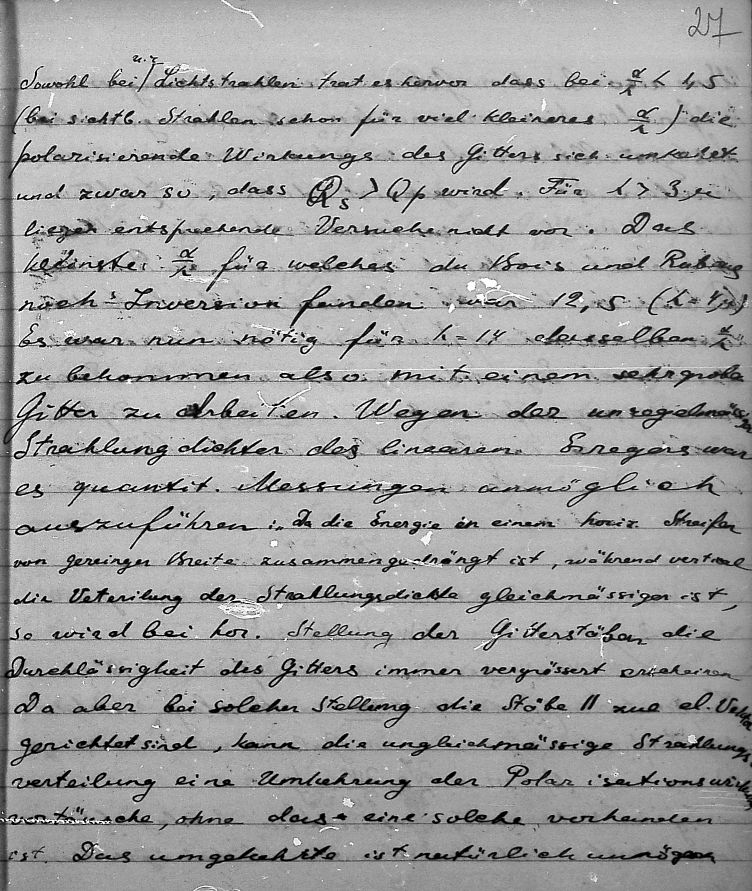 27
u. r.
Sowohl bei Lichtstrahlen trat es hervor dass bei a/λ < 4,5
(bei sichtb. Strahlen schon für viel kleineres a/λ) die
polarisierende Wirkungs des Gitters sich umkehrt
und zwar so, dass Qs > Qp wird. Für λ > 3 μ
liegen entsprechende Versuche nicht vor. Das
kleinste a/λ für welches du Bois und Rubens
noch Inversion fanden war 12,5 (λ = 4μ)
Es war nun nötig für λ = 14 desselben a/λ
zu bekommen also mit einem sehr grobe
Gitter zu Arbeiten. Wegen der unregelmässigen
Strahlungdichter des linearen Erregers war
es quantit. Messungen unmöglich
auszuführen: Da die Energie in einem horiz. Streifen
von geringer Breite zusammengedrängt ist, während vertical
die Veterilung der Strahlungsdichte gleichmässiger ist,
so wird bei hor. Stellung der Gitterstäben die
Durchlässigkeit des Gitters immer vergrössert erscheinen
Da aber bei solcher Stellung die Stäbe || zur el. Vektor
gerichtet sind, kann die ungleichmässige Strahlungs
verteilung eine Umkehrung der Polarisationswirkung
vortäusche, ohne dass eine solche vorhanden
ist. Das umgekehrte ist natürlich